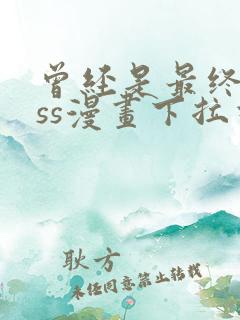 曾经是最终
ss漫畫下拉
耿方
未经同意禁止转载